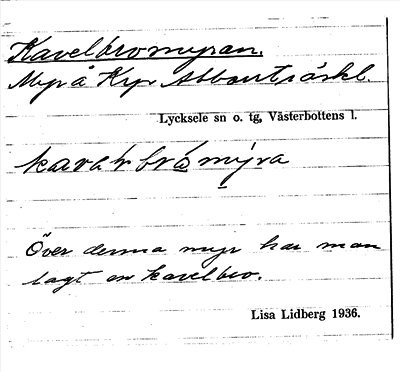 Kavelbromyran.
Myr å Krp Abborrträskl.
Lycksele sn o. tg, Västerbottens l.
kava lv brå mýra
Över denna myr har man
lagt en kavelbro.
Lisa Lidberg 1936.